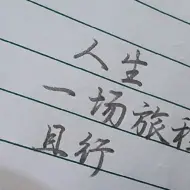 人生
一场旅程
且行